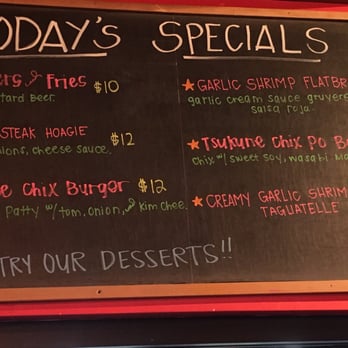 TODAY'S SPECIALS
& Fries $10
Beer.
STEAK HOAGIE
$12
cheese sauce.
Chix Burger $12
Patty w/ tom, onion, & Kim chee.
★ GARLIC SHRIMP
garlic cream sauce
salsa roja.
★ Tsukune Chix Po
Chix w/ sweet soy, wasabi
★ CREAMY GARLIC SHRIM
TAGUATELLE
TRY OUR DESSERTS!!